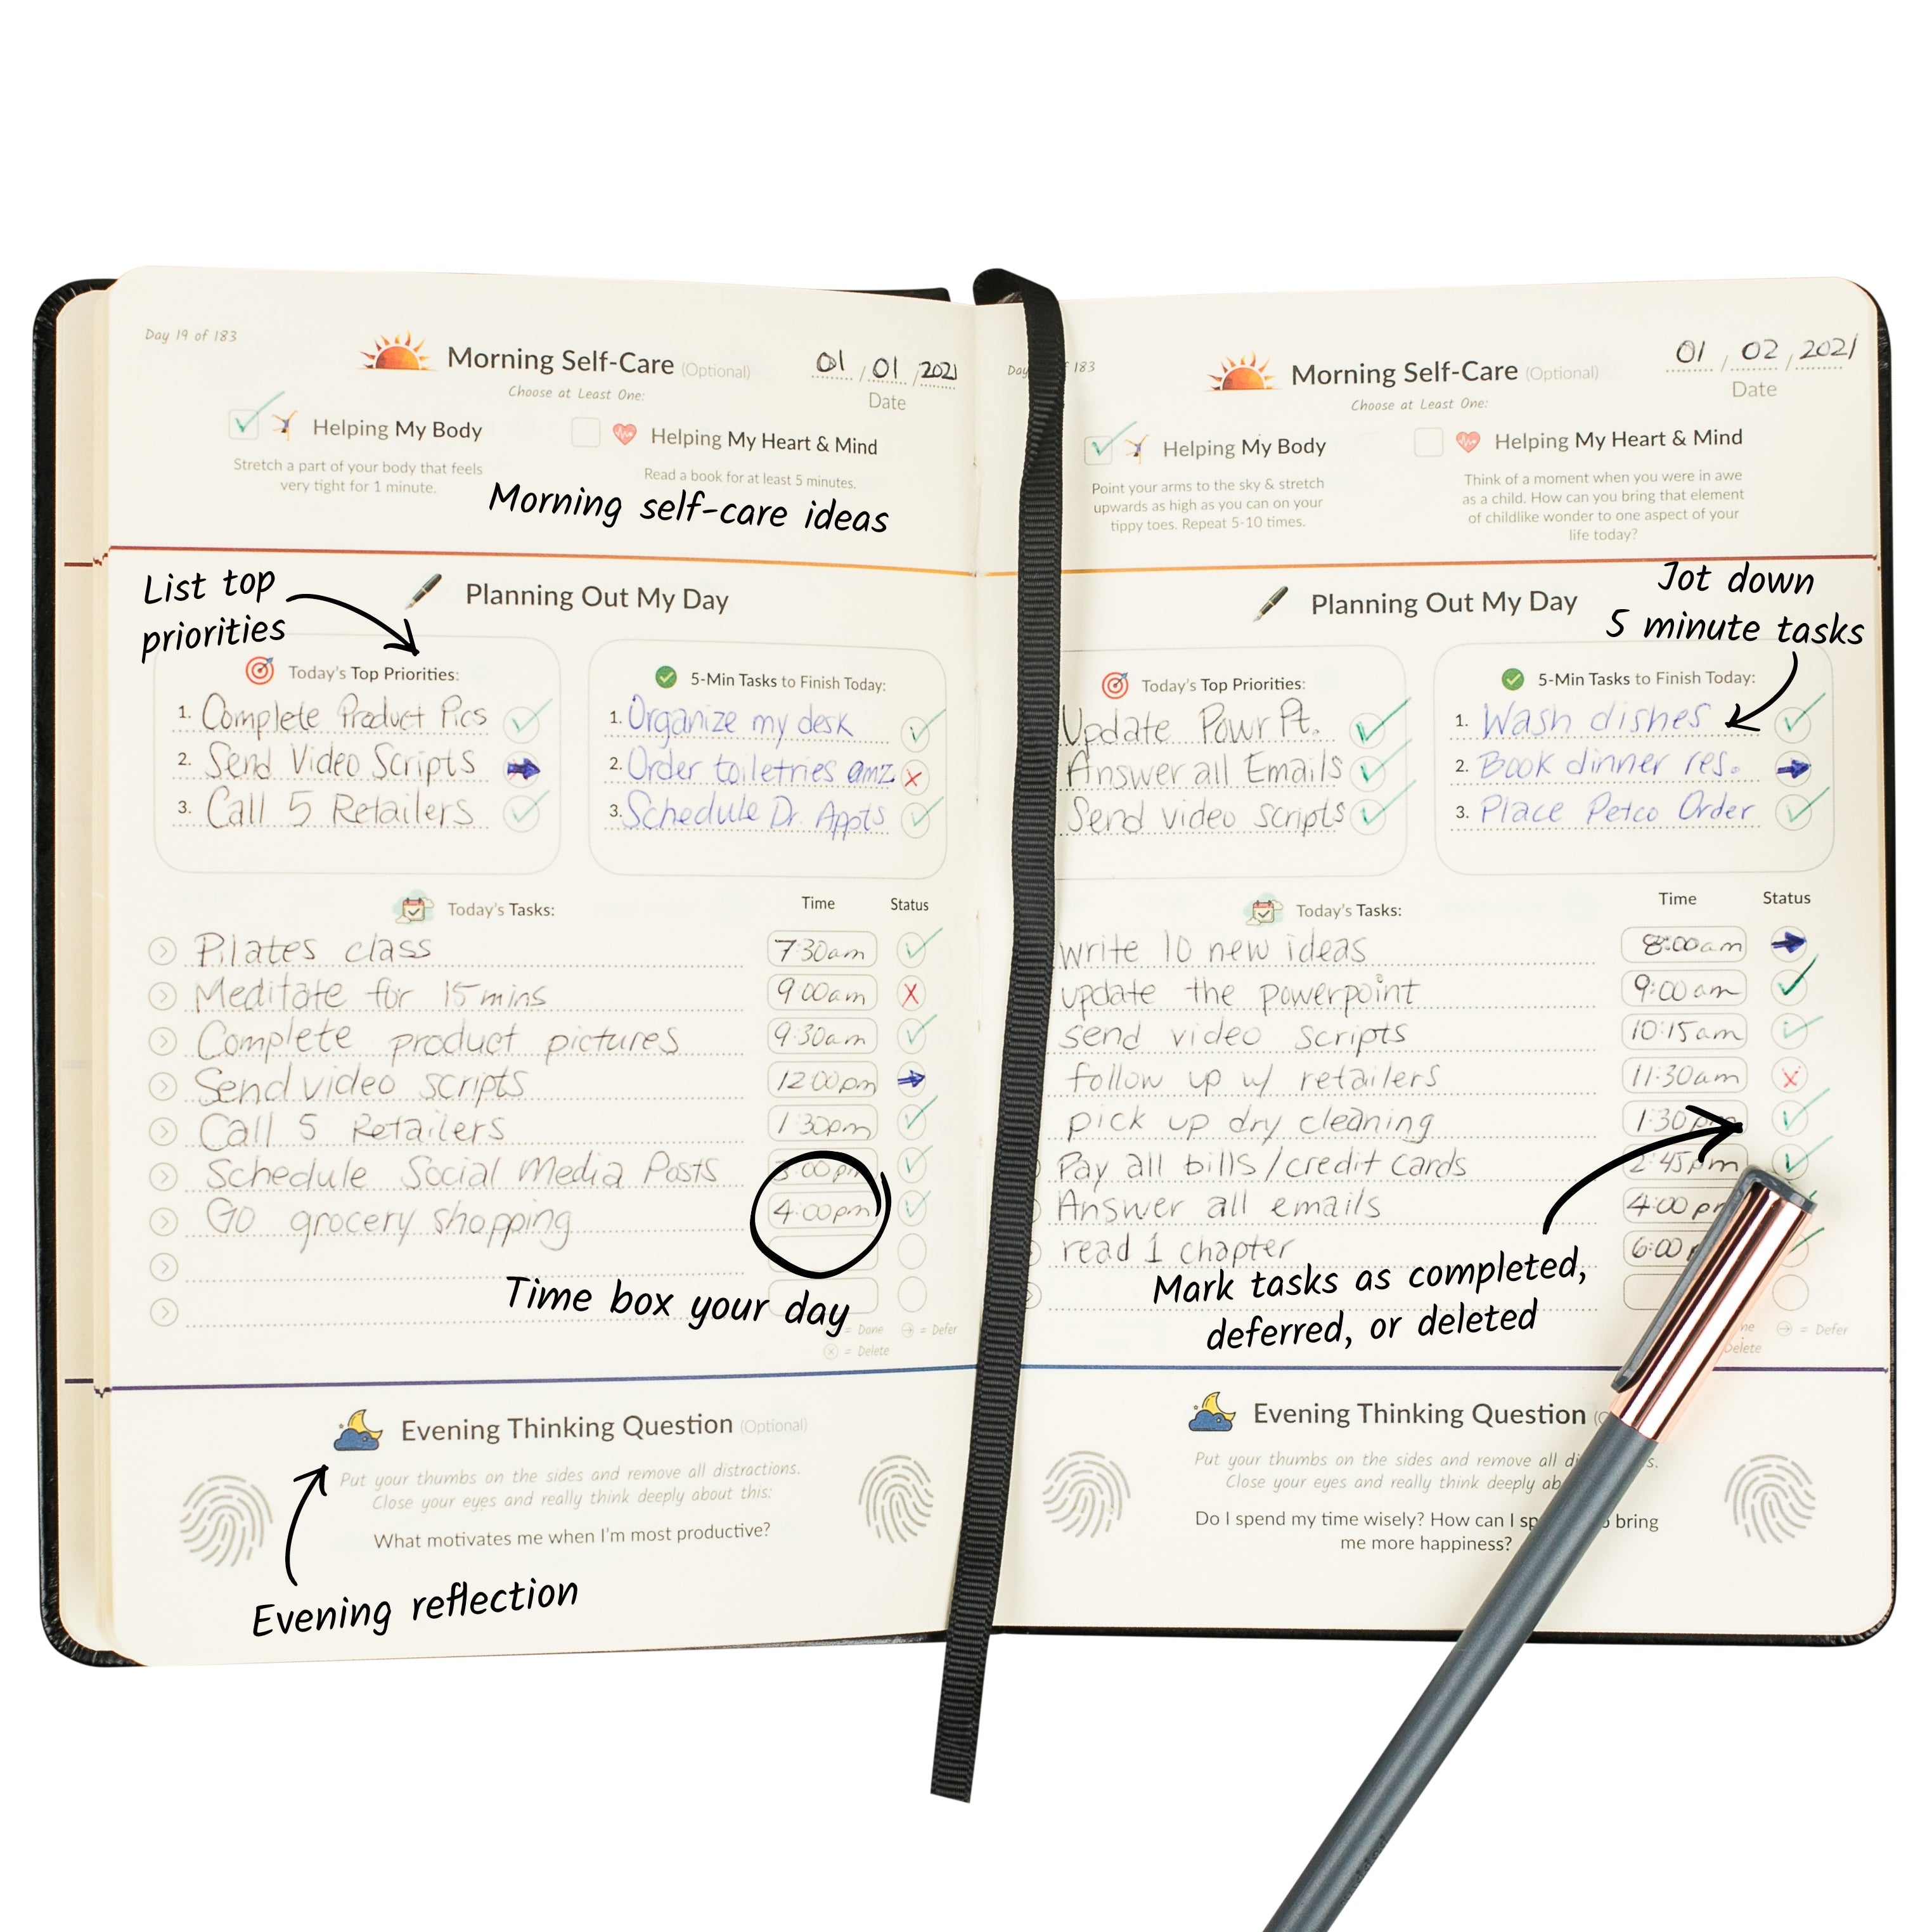 Day 19 of 183
Morning Self-Care (Optional)
01 / 01 / 2021
Date
Choose at Least One:
Helping My Body
Stretch a part of your body that feels
very tight for 1 minute.
Helping My Heart & Mind
Read a book for at least 5 minutes.
Morning self-care ideas
List top
priorities
Planning Out My Day
Today's Top Priorities:
1. Complete Product Pics
2. Send Video Scripts
3. Call 5 Retailers
5-Min Tasks to Finish Today:
1. Organize my desk
2. Order toiletries amz.
3. Schedule Dr. Appts
Today's Tasks: Time Status
Pilates class 7:30am
Meditate for 15 mins 9:00am
Complete product pictures 9:30am
Send video scripts 12:00pm
Call 5 Retailers 1:30pm
Schedule Social Media Posts 3:00pm
Go grocery shopping 4:00pm
Time box your day
= Done = Defer
= Delete
Evening Thinking Question (Optional)
Put your thumbs on the sides and remove all distractions.
Close your eyes and really think deeply about this:
What motivates me when I'm most productive?
Evening reflection
Day 183
Morning Self-Care (Optional)
01 / 02 / 2021
Date
Choose at Least One:
Helping My Body
Point your arms to the sky & stretch
upwards as high as you can on your
tippy toes. Repeat 5-10 times.
Helping My Heart & Mind
Think of a moment when you were in awe
as a child. How can you bring that element
of childlike wonder to one aspect of your
life today?
Planning Out My Day
Jot down
5 minute tasks
Today's Top Priorities:
Update Powr Pt.
Answer all Emails
Send video scripts
5-Min Tasks to Finish Today:
1. Wash dishes
2. Book dinner res.
3. Place Petco Order
Today's Tasks: Time Status
write 10 new ideas 8:00am
update the powerpoint 9:00am
send video scripts 10:15am
follow up w/ retailers 11:30am
pick up dry cleaning 1:30pm
Pay all bills/credit cards 2:45pm
Answer all emails 4:00
read 1 chapter 6:00
Mark tasks as completed,
deferred, or deleted
= Defer
Delete
Evening Thinking Question
Put your thumbs on the sides and remove all
Close your eyes and really think deeply
Do I spend my time wisely? How can I bring
me more happiness?